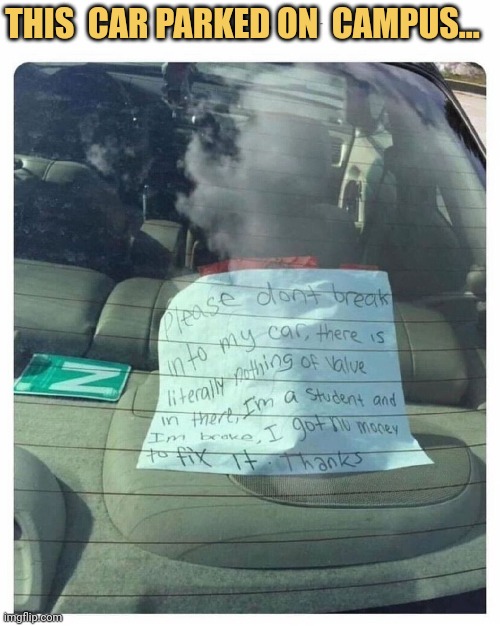 THIS CAR PARKED ON CAMPUS...
Please dont break
into my car, there is
literally nothing of value
in there, I'm a student and
Im broke, I got no money
to fix it. Thanks
N
imgflip.com